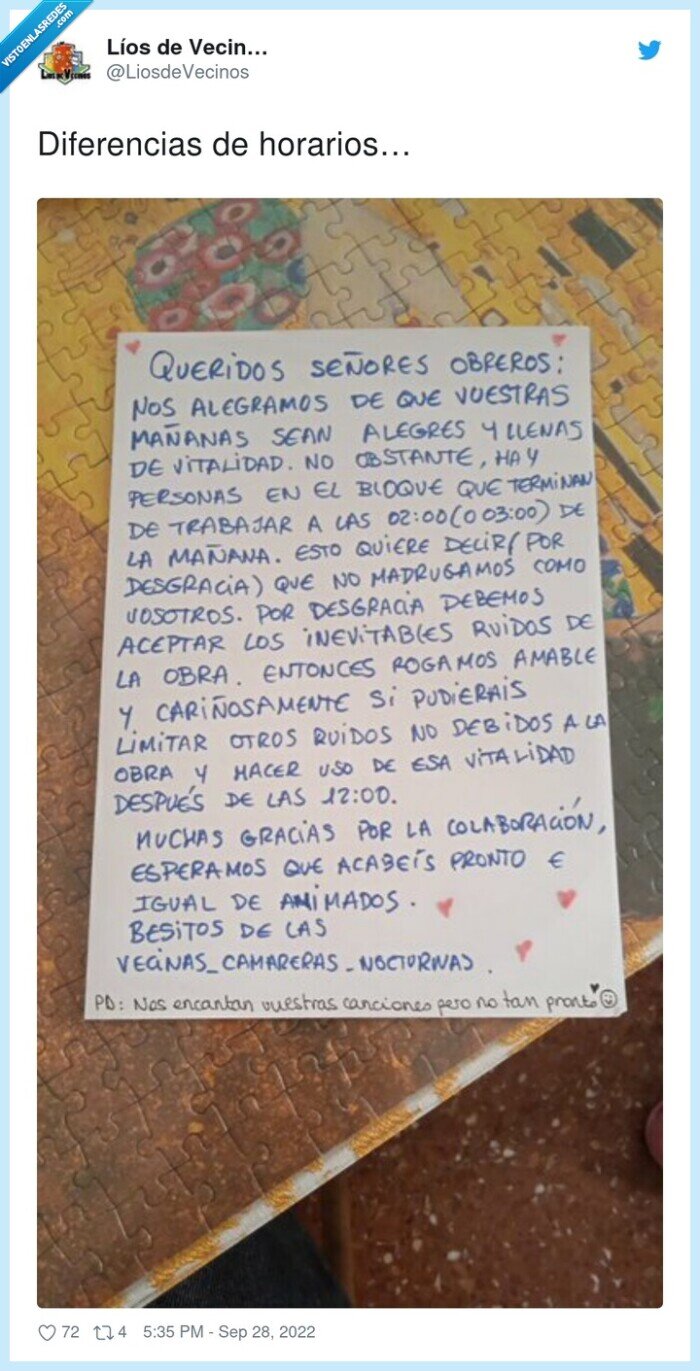 VISTOENLASREDES
.com
Líos de Vecin…
@LiosdeVecinos
Diferencias de horarios…
QUERIDOS SEÑORES OBREROS:
NOS ALEGRAMOS DE QUE VUESTRAS
MAÑANAS SEAN ALEGRES Y LLENAS
DE VITALIDAD. NO OBSTANTE, HAY
PERSONAS EN EL BLOQUE QUE TERMINAN
DE TRABAJAR A LAS 02:00 (O 03:00) DE
LA MAÑANA. ESTO QUIERE DECIR (POR
DESGRACIA) QUE NO MADRUGAMOS COMO
VOSOTROS. POR DESGRACIA DEBEMOS
ACEPTAR LOS INEVITABLES RUIDOS DE
LA OBRA. ENTONCES ROGAMOS AMABLE
Y CARIÑOSAMENTE SI PUDIERAIS
LIMITAR OTROS RUIDOS NO DEBIDOS A LA
OBRA Y HACER USO DE ESA VITALIDAD
DESPUÉS DE LAS 12:00.
MUCHAS GRACIAS POR LA COLABORACIÓN,
ESPERAMOS QUE ACABEÍS PRONTO E
IGUAL DE ANIMADOS.
BESITOS DE LAS
VECINAS_CAMARERAS_NOCTURNAS.
PD: Nos encantan vuestras canciones pero no tan pronto
72 4 5:35 PM - Sep 28, 2022